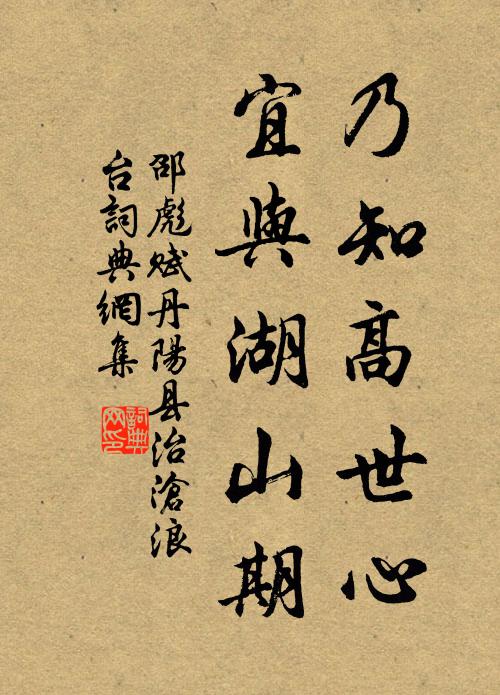 乃知高世心
宜與湖山期
邵彪賦丹陽县治滄浪
台詞典網集
詞典
网印